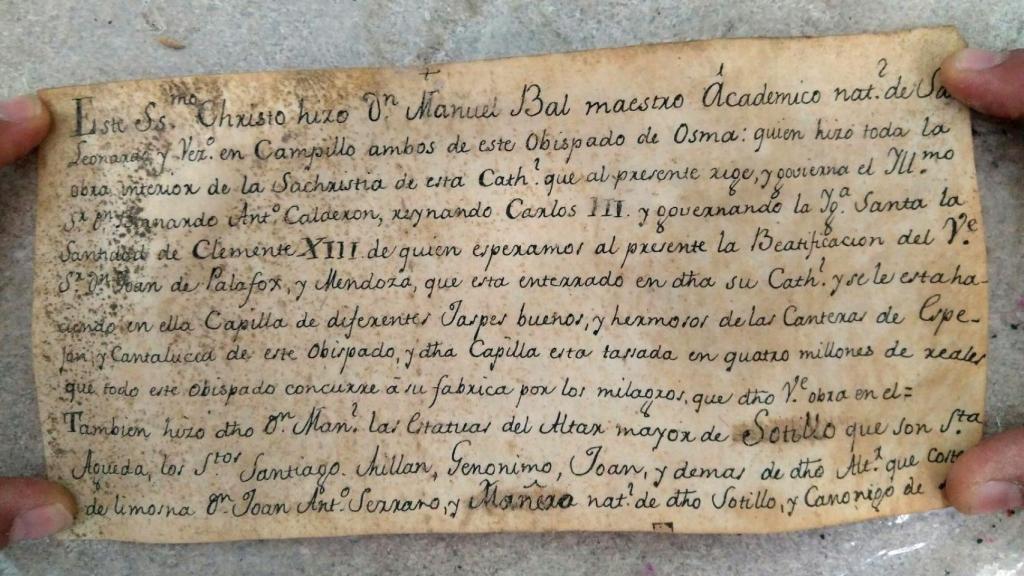 Este Ss.mo Christo hizo Dn Manuel Bal maestro Academico nat.l de Sn
Leonardo y Vez.o en Campillo ambos de este Obispado de Osma: quien hizo toda la
obra interior de la Sachristia de esta Cath.l que al presente rige, y govierna el Yll.mo
Sr Dn Bernardo Ant.o Calderon, reynando Carlos III. y governando la Yg.a Santa la
Santidad de Clemente XIII de quien esperamos al presente la Beatificacion del V.e
Sr Dn Joan de Palafox, y Mendoza, que esta enterrado en dha su Cath.l y se le esta ha-
ciendo en ella Capilla de diferentes Jaspes buenos, y hermosos de las Canteras de Espe-
jon y Cantalucia de este Obispado, y dha Capilla esta tassada en quatro millones de reales
que todo este Obispado concurre â su fabrica por los milagros, que dho V.e obra en el=
Tambien hizo dho Dn Man.l las Estatuas del Altar mayor de Sotillo que son S.ta
Agueda, los S.tos Santiago. Millan, Geronimo, Joan, y demas de dho Alt.r que costeo
de limosna Dn Joan Ant.o Serrano, y Mañero nat.l de dho Sotillo, y Canonigo de